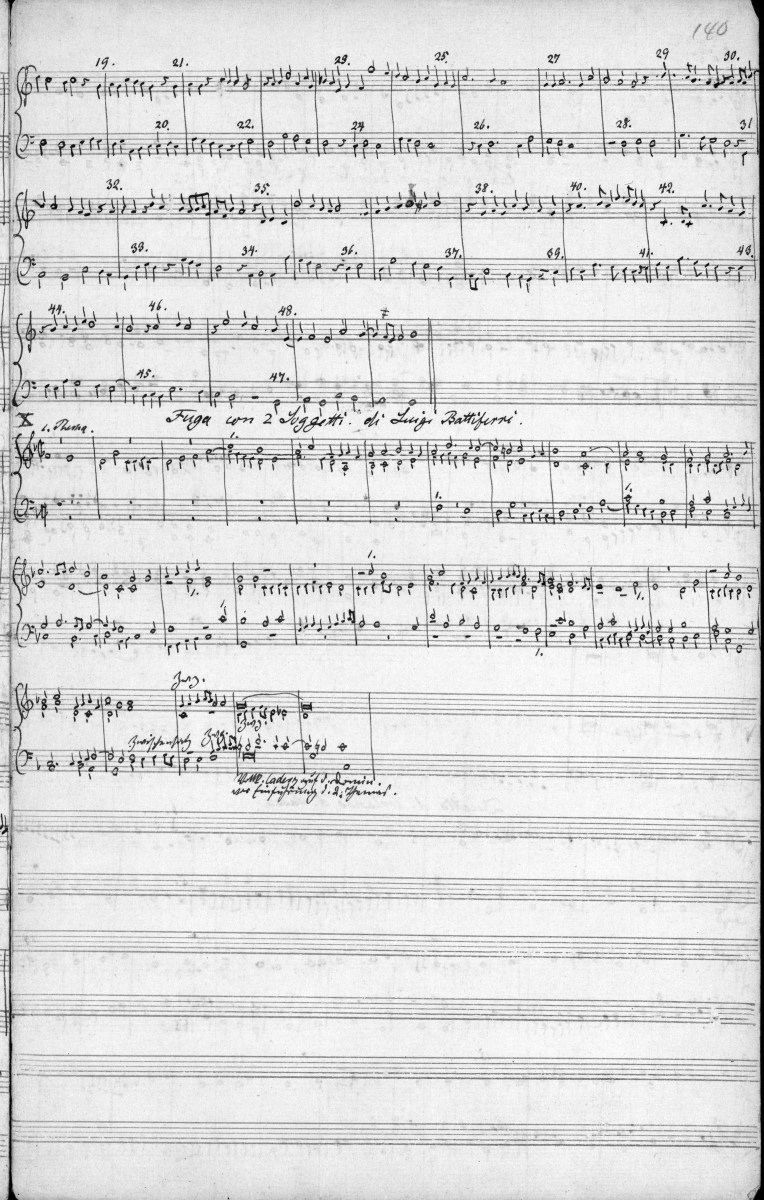 140
19. 21. 23. 25. 27 29 30.
20. 22. 24 26. 28. 31
32. 35. 38. 40. 42.
33. 34. 36. 37. 39. 41. 43.
44. 46. 48.
45. 47.
X Fuga con 2 Soggetti. di Luigi Battiferri.
1. Thema.
1.
1.
1.
1.
1.
1.
Zwg.
Zwischensatz Zwg.
Zwg.
Cadenz auf d.
vor Einführung d. 2. Themas.